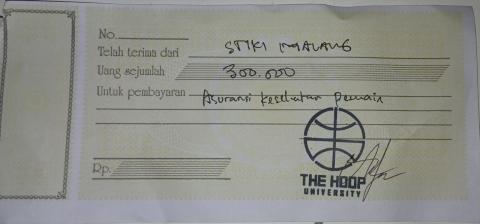 No.
Telah terima dari STIKI MALANG
Uang sejumlah 300.000
Untuk pembayaran Asuransi kesehatan pemain
Rp.
THE HOOP
UNIVERSITY